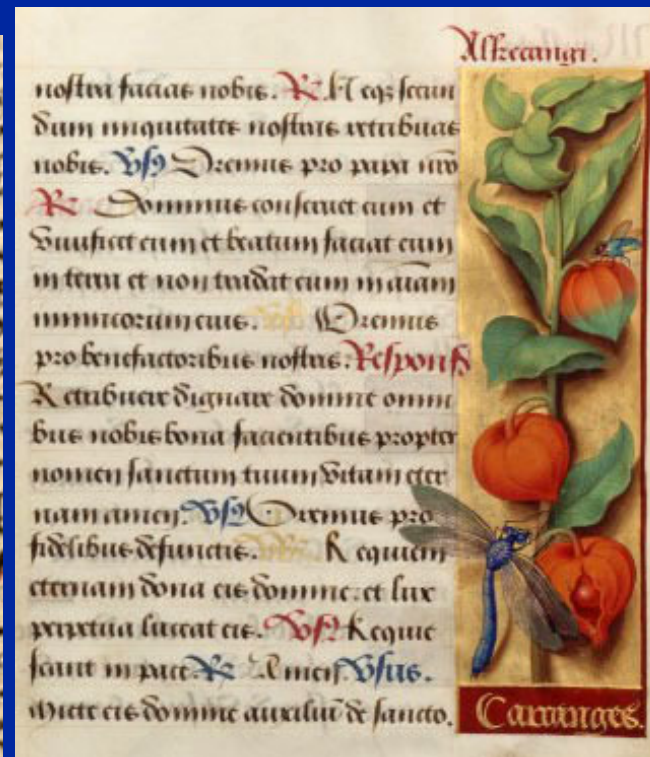 Alkecangi.
nostra facias nobis. R. Neq; secun
dum iniquitates nostras retribuas
nobis. Vs. Oremus pro papa nro
R. Dominus conseruet eum et
viuificet eum et beatum faciat eum
in terra et non tradat eum in aiam
inimicorum eius. Vs. Oremus
pro benefactoribus nostris. Respons
Retribuere dignare domine omni
bus nobis bona facientibus propter
nomen sanctum tuum vitam eter
nam amen. Vs. Oremus pro
fidelibus defunctis. R. Requiem
eternam dona eis domine. et lux
perpetua luceat eis. Vs. Requie
scant in pace R. Amen. Vsus.
Mitte eis domine auxiliū de sancto.
Caranges.